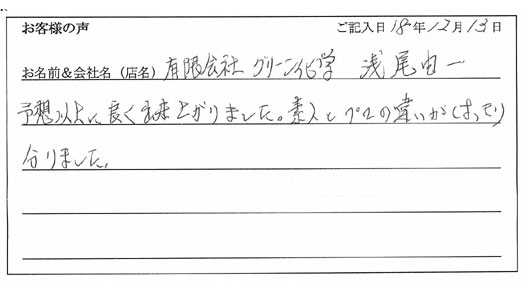 お客様の声 ご記入日18年12月13日
お名前&会社名(店名) 有限会社 グリーン化学 浅尾由一
予想以上に良く出来上がりました。素人とプロの違いがはっきり
分りました。